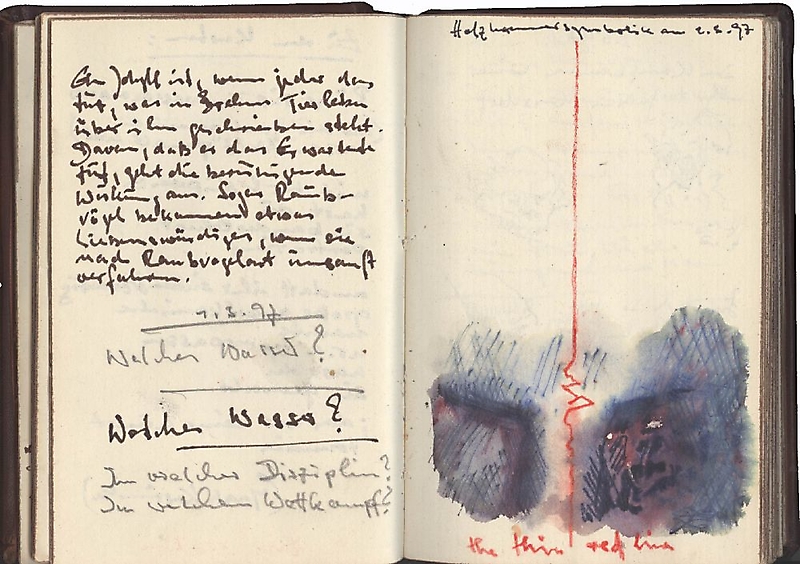 Ein Idyll ist, wenn jeder das
tut, was in Brehms Tierleben
über ihn geschrieben steht.
Davon, daß er das Erwartete
tut, geht die beruhigende
Wirkung aus. Sogar Raub-
vögel bekommen etwas
Liebenswürdiges, wenn sie
nach Raubvogelart unsanft
verfahren.
1.3.97
Welches Wasser?
Welches Wasser?
In welcher Disziplin?
In welchem Wettkampf?
Holzhammersymbolik am 2.3.97
the thin red line